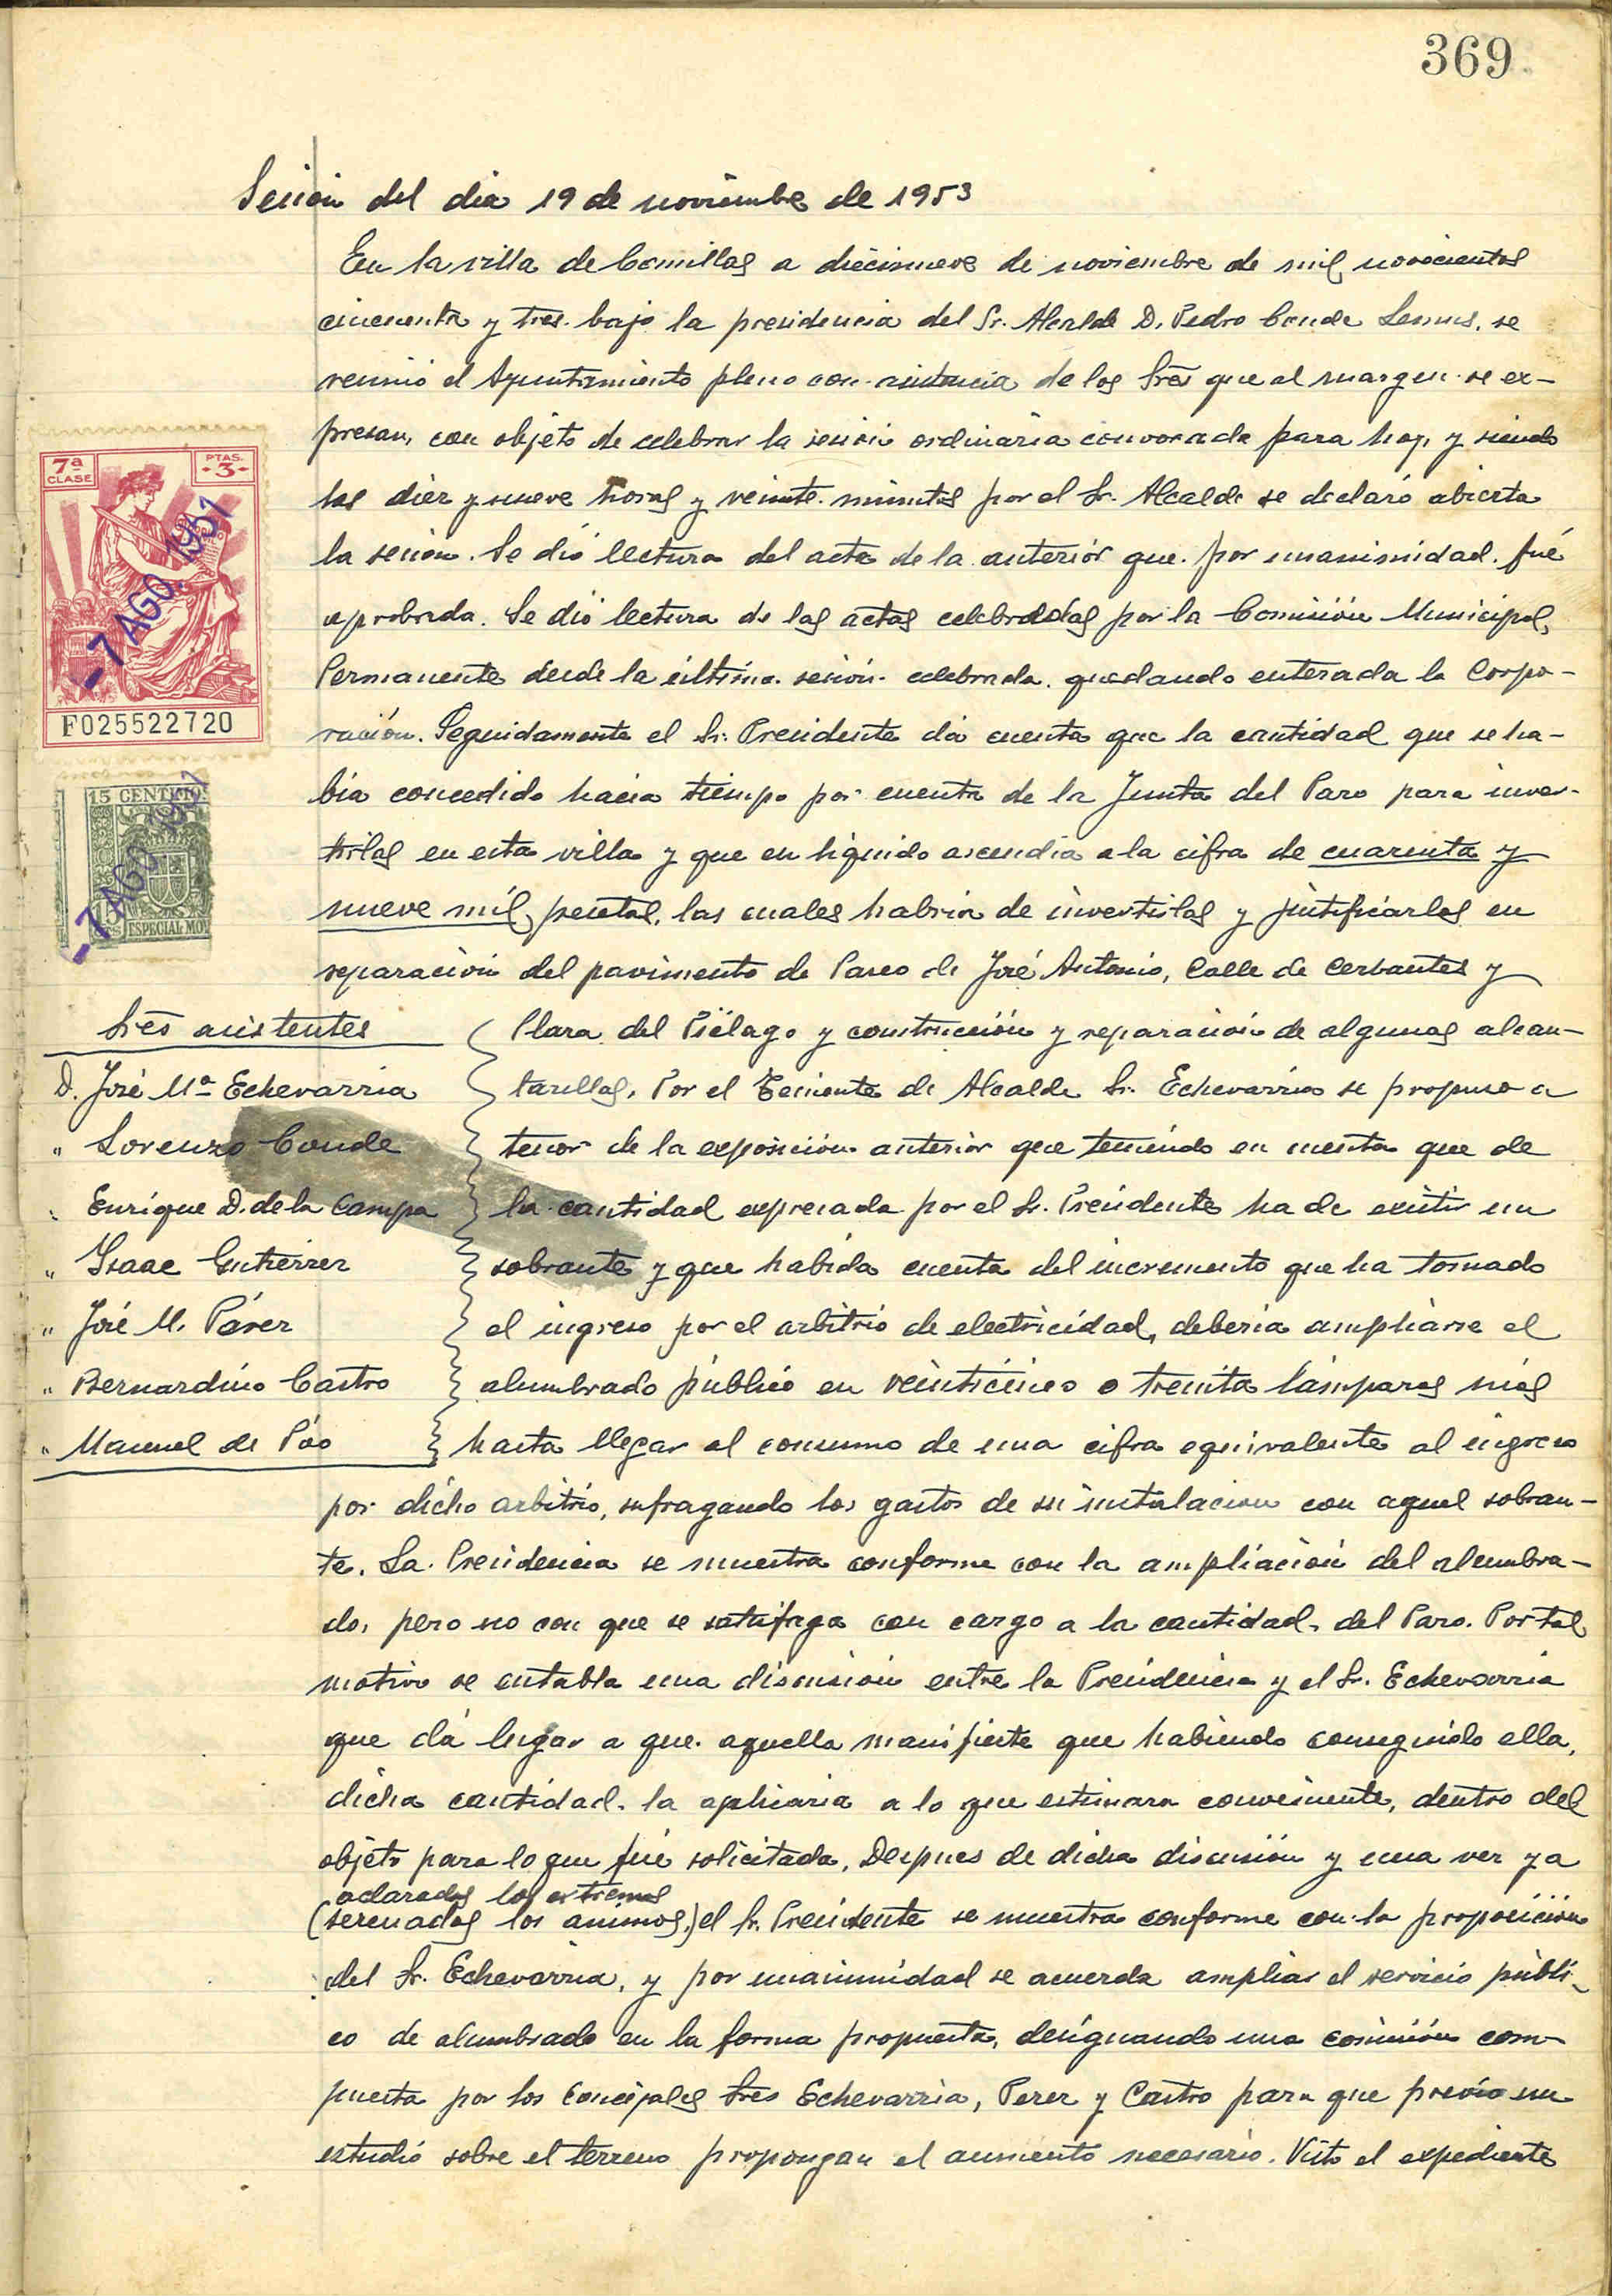 369
Sesión del dia 19 de noviembre de 1953
En la villa de Comillas a diecinueve de noviembre de mil novecientos
cincuenta y tres. bajo la presidencia del Sr. Alcalde D. Pedro Conde Lemus, se
reunió el Ayuntamiento pleno con asistencia de los Sres que al margen se ex-
presan, con objeto de celebrar la sesión ordinaria convocada para hoy, y siendo
las diez y nueve horas y veinte minutos por el Sr. Alcalde se declaró abierta
la sesion. Se dió lectura del acta de la anterior que por unanimidad fué
aprobada. Se dió lectura de las actas celebradas por la Comisión Municipal
Permanente desde la última sesión celebrada quedando enterada la Corpo-
ración. Seguidamente el Sr. Presidente dá cuenta que la cantidad que se ha-
bia concedido hacia tiempo por cuenta de la Junta del Paro para inver-
tirlas en esta villa y que en liquido ascendia a la cifra de cuarenta y
nueve mil pesetas, las cuales habria de invertirlas y justificarlas en
reparación del pavimento de Paseo de José Antonio, Calle de Cerbantes y
Plaza del Piélago y construcción y reparación de algunas alcan-
tarillas. Por el Teniente de Alcalde Sr. Echevarria se propuso a
tenor de la exposición anterior que teniendo en cuenta que de
la cantidad expresada por el Sr. Presidente ha de existir un
sobrante y que habida cuenta del incremento que ha tomado
el ingreso por el arbitrio de electricidad, deberia ampliarse el
alumbrado público en veinticinco o treinta lámparas más
hasta llegar al consumo de una cifra equivalente al ingreso
por dicho arbitrio, sufragando los gastos de su instalacion con aquel sobran-
te. La Presidencia se muestra conforme con la ampliación del alumbra-
do, pero no con que se satisfaga con cargo a la cantidad del Paro. Por tal
motivo se entabla una discusión entre la Presidencia y el Sr. Echevarria
que dá lugar a que aquella manifieste que habiendo conseguido ella,
dicha cantidad la aplicaria a lo que estimara conveniente, dentro del
objeto para lo que fué solicitada. Despues de dicha discusión y una vez ya
aclarados los extremos
(serenados los animos,) el Sr. Presidente se muestra conforme con la proposición
del Sr. Echevarria, y por unanimidad se acuerda ampliar el servicio públi-
co de alumbrado en la forma propuesta, designando una comisión com-
puesta por los Concejales Sres Echevarria, Perez y Castro para que previo un
estudio sobre el terreno propongan el aumento necesario. Visto el expediente
7ª CLASE
PTAS. -3-
-7 AGO. 1951
F025522720
15 CENTIMO
-7 AGO 1951
ESPECIAL MOV
Sres asistentes
D. José Mª Echevarria
" Lorenzo Conde
" Enrique D. de la Campa
" Isaac Gutiérrez
" José M. Pérez
" Bernardino Castro
" Manuel de Póo